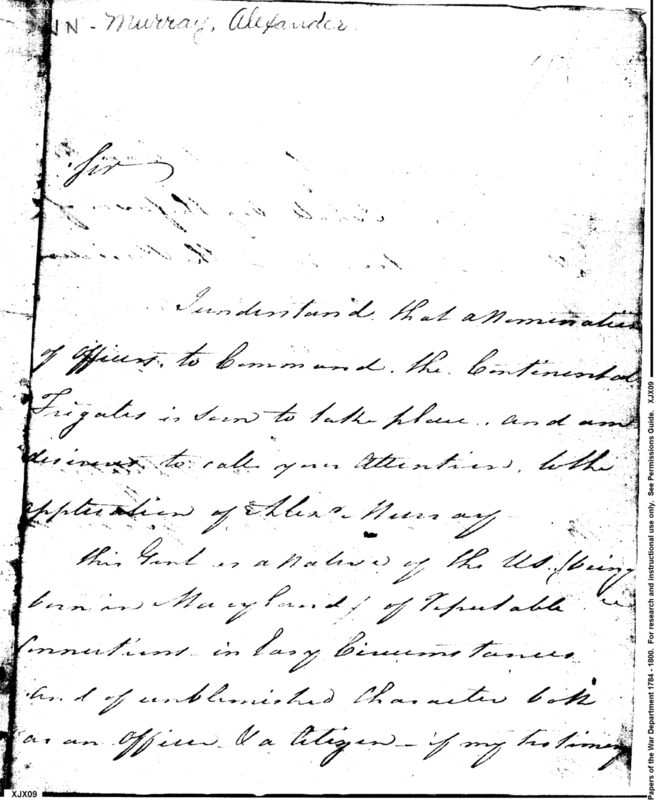 NN - Murray, Alexander.
Sir
I understand that a Nomination
of Officers to Command the Continental
Frigates is soon to take place, and am
desirous to call your Attention to the
application of Alexr Murray
this Gent is a Native of the US. (being
born in Maryland) of reputable
Connections in Easy Circumstances
and of unblemished Character both
as an Officer & a Citizen - if my testimony
XJX09
Papers of the War Department 1784 - 1800. For research and instructional use only. See Permissions Guide. XJX09